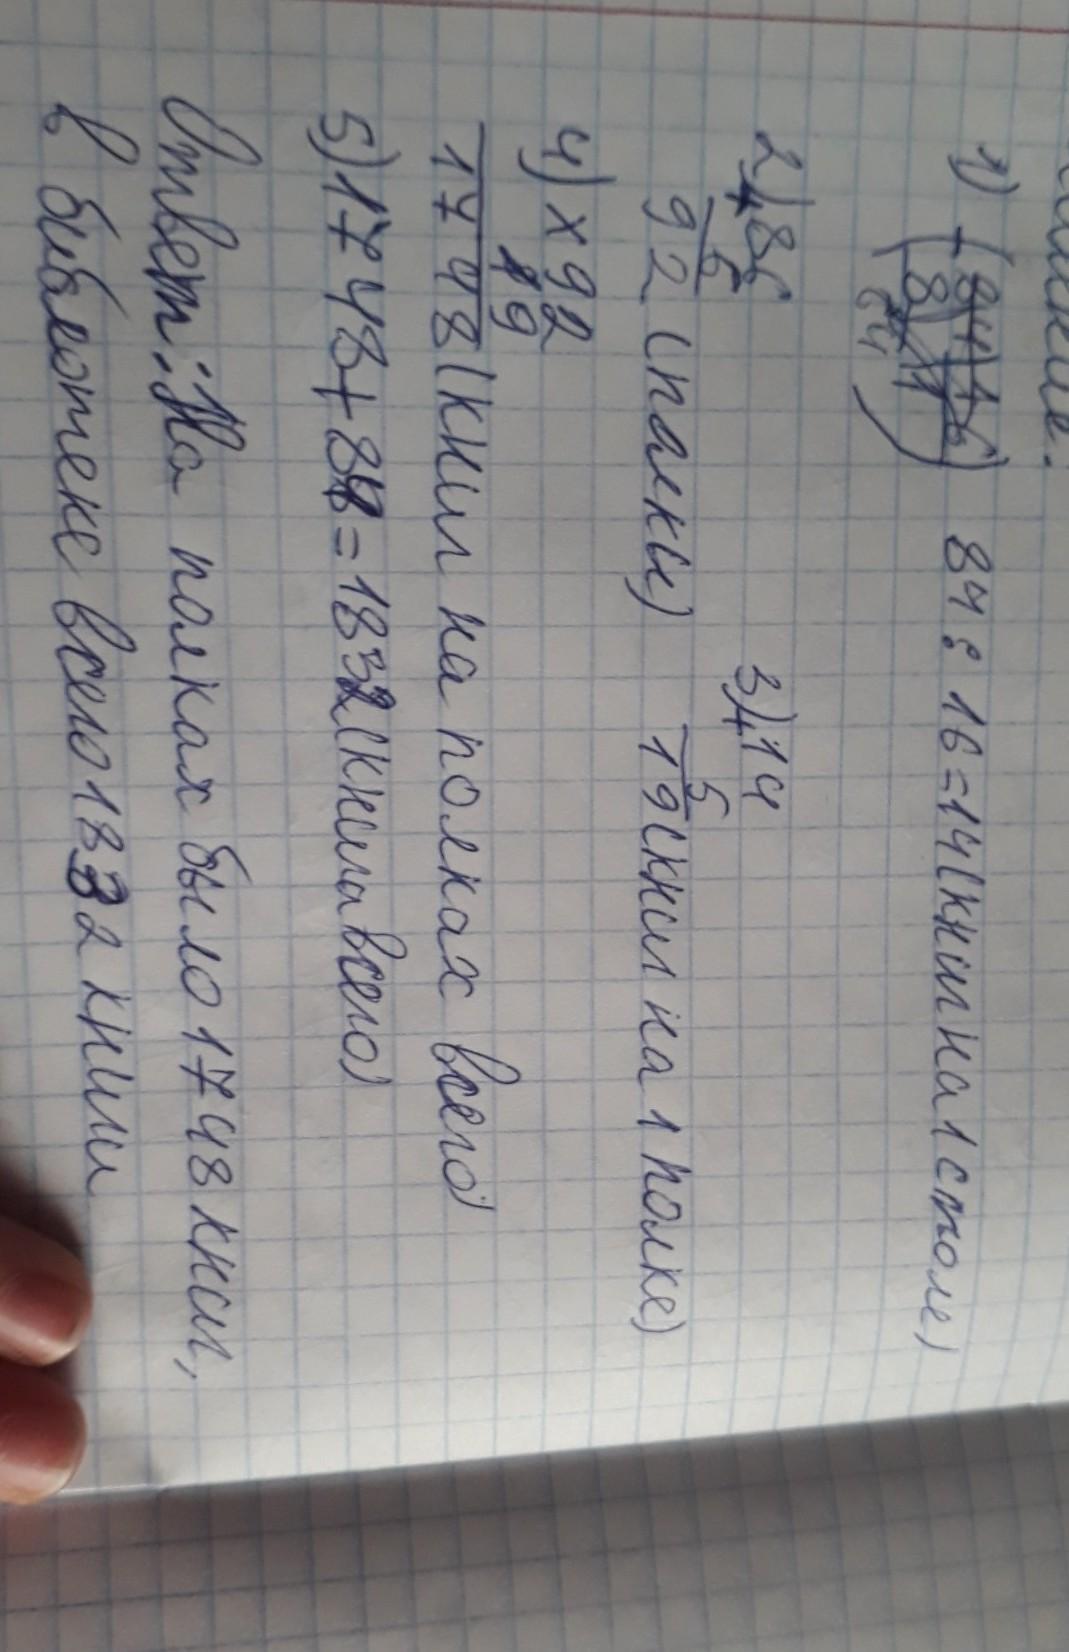 1) 84 : 16 = 14 (книг на 1 столе)
2) + 86
6
92 (полки)
3) + 14
5
19 (книг на 1 полке)
4) × 92
19
1748 (книг на полках всего)
5) 1748 + 84 = 1832 (книга всего)
Ответ: На полках было 1748 книг,
в библиотеке всего 1832 книги